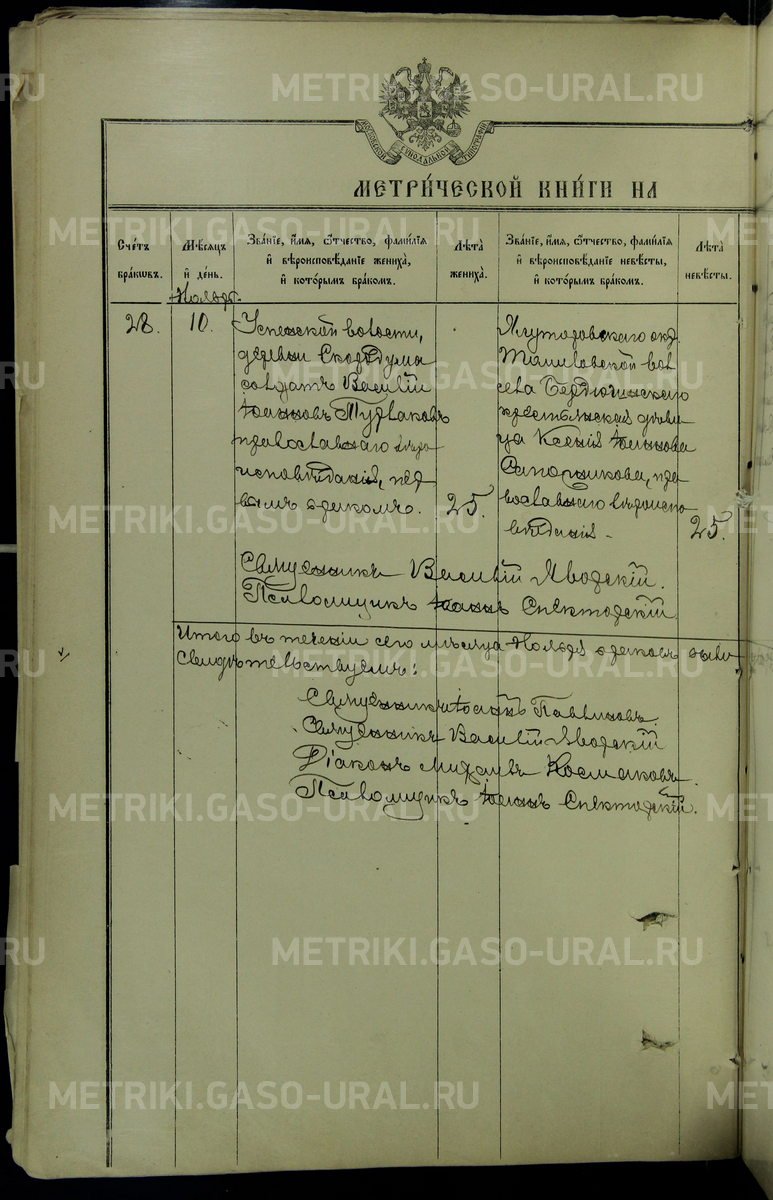 METRIKI.GASO-URAL.RU
МОСКОВСКОЙ СѴНОДАЛЬНОЙ ТИПОГРАФІИ
МЕТРИ́ЧЕСКОЙ КНИ́ГИ НА
Сче́тъ бра́кѡвъ.
Мѣ́сяцъ и҆ де́нь.
Зва́нїе, и҆́мя, ѻ҆́тчество, фами́лїя и҆ вѣроисповѣ́данїе жениха̀, и҆ кото́рымъ бра́комъ.
Лѣ́та жениха̀.
Зва́нїе, и҆́мя, ѻ҆́тчество, фами́лїя и҆ вѣроисповѣ́данїе невѣ́сты, и҆ кото́рымъ бра́комъ.
Лѣ́та невѣ́сты.
Ноября
28.
10.
Успенской волости,
деревни Скородума
солдатъ Василій
Іоанновъ
православнаго вѣро
исповѣданія, пер
вымъ бракомъ.
25.
Ялуторовскаго окр.
вол
села Бердюгинскаго
крестьянская дѣви
ца Ксенія Іоаннова
Сапожникова, пра
вославнаго вѣроиспо
вѣданія.
25.
Священникъ Василій Яворскій.
Псаломщикъ Іоаннъ Спекторскій
Итого въ теченіи сего мѣсяца Ноября браковъ было
Свидѣтельствуемъ:
Священникъ Іоаннъ
Священникъ Василій Яворскій
Діаконъ Михаилъ Космаковъ
Псаломщикъ Іоаннъ Спекторскій.